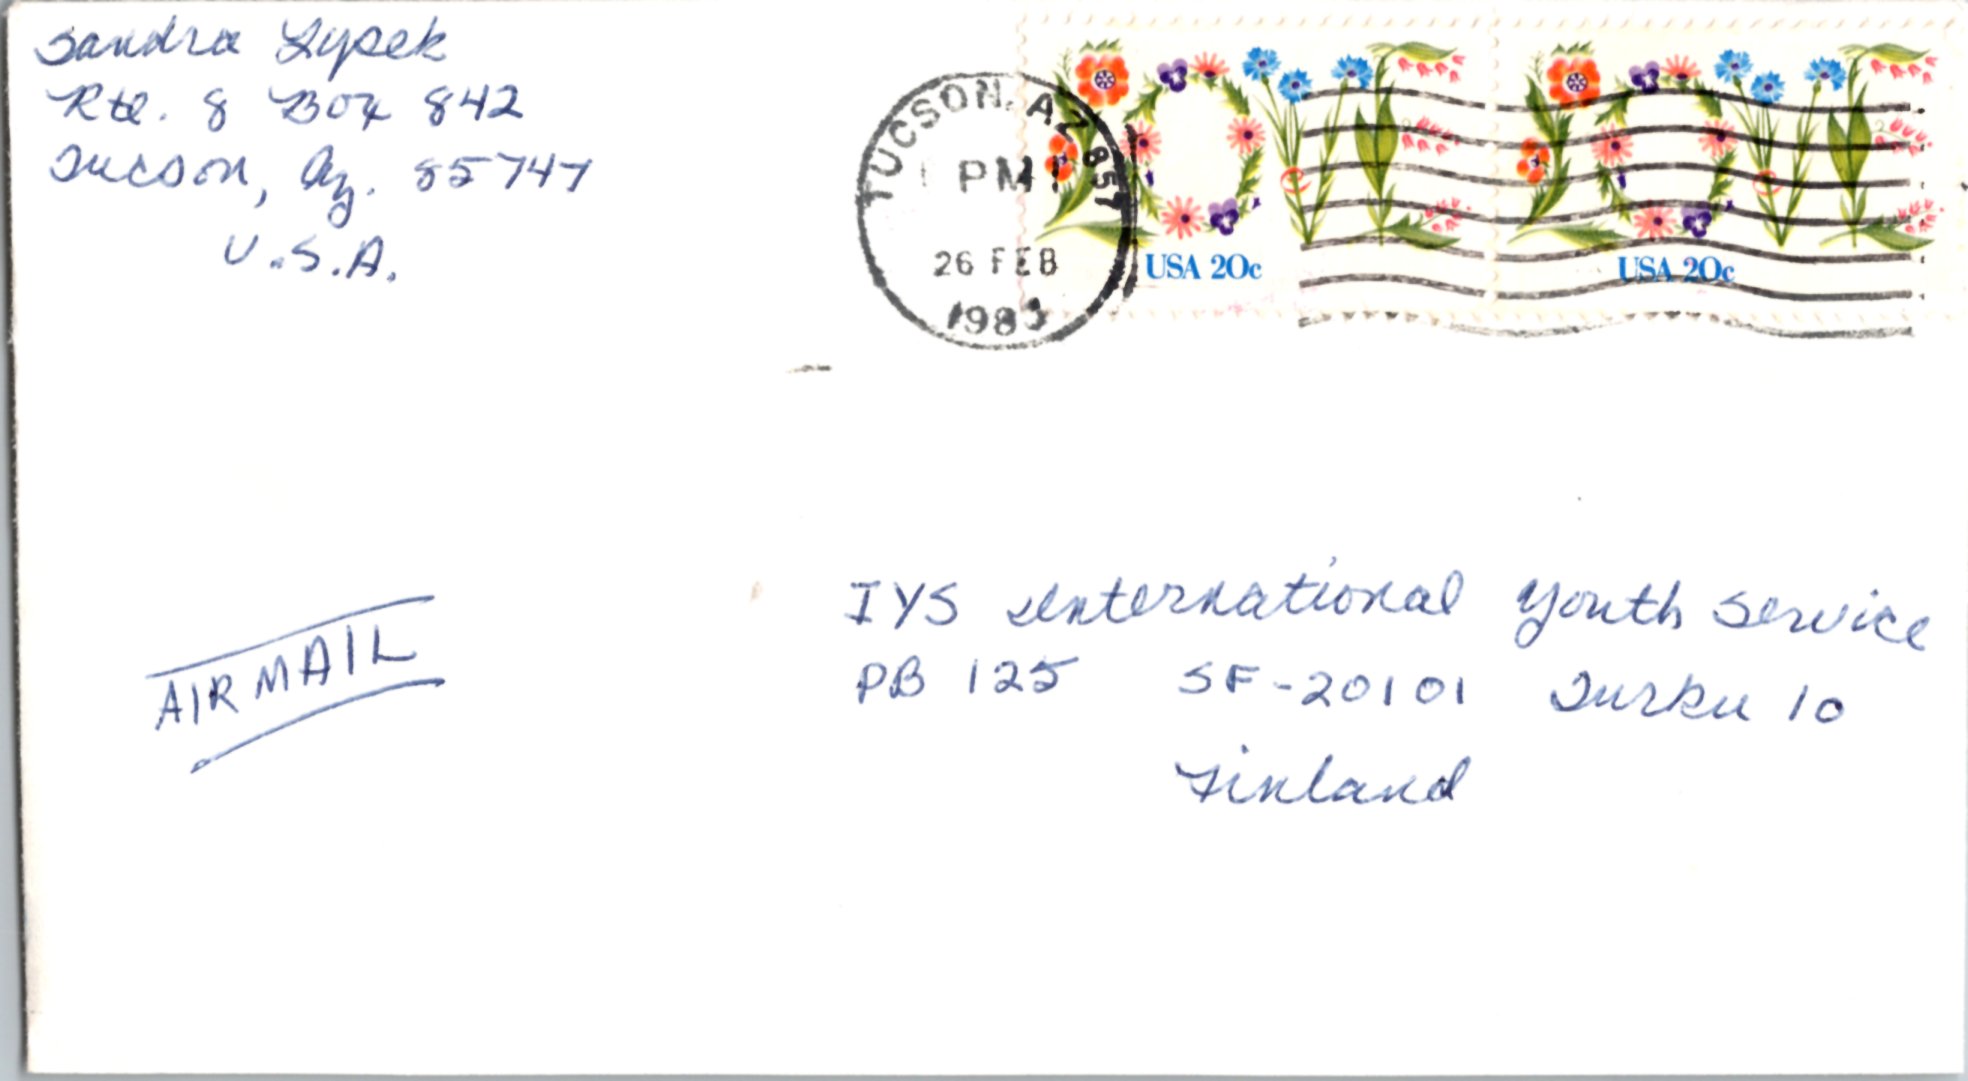 Sandra Lysek
Rte. 8 Box 842
Tucson, Az. 85747
U.S.A.
TUCSON, AZ 857
PM
26 FEB
1983
LOVE
USA 20c
LOVE
USA 20c
AIRMAIL
IYS International Youth Service
PB 125 SF-20101 Turku 10
Finland